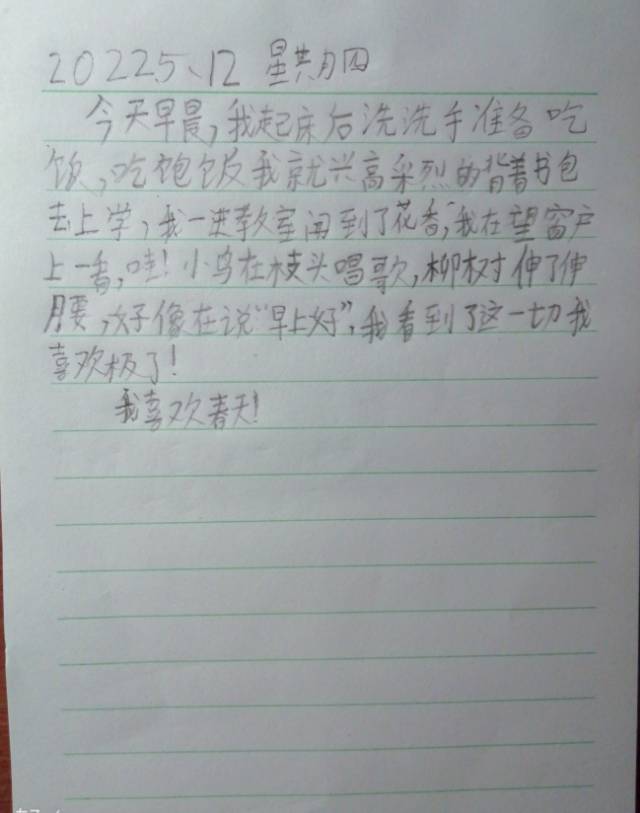 2022.5、12 星期四
今天早晨，我起床后洗洗手准备吃
饭，吃饱饭我就兴高采烈的背着书包
去上学，我一进教室闻到了花香，我在望窗户
上一看，哇！小鸟在枝头唱歌，柳树伸了伸
腰，好像在说“早上好”，我看到了这一切我
喜欢极了！
我喜欢春天！